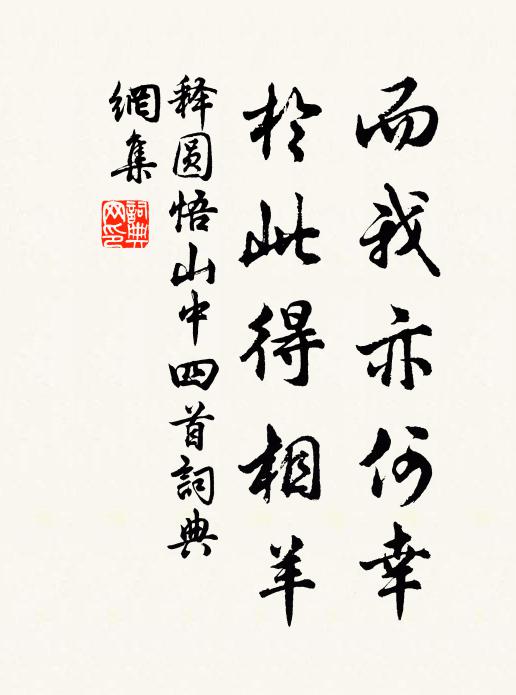 而我亦何幸
於此得相羊
释圆悟山中四首詞典
網集
詞典網印